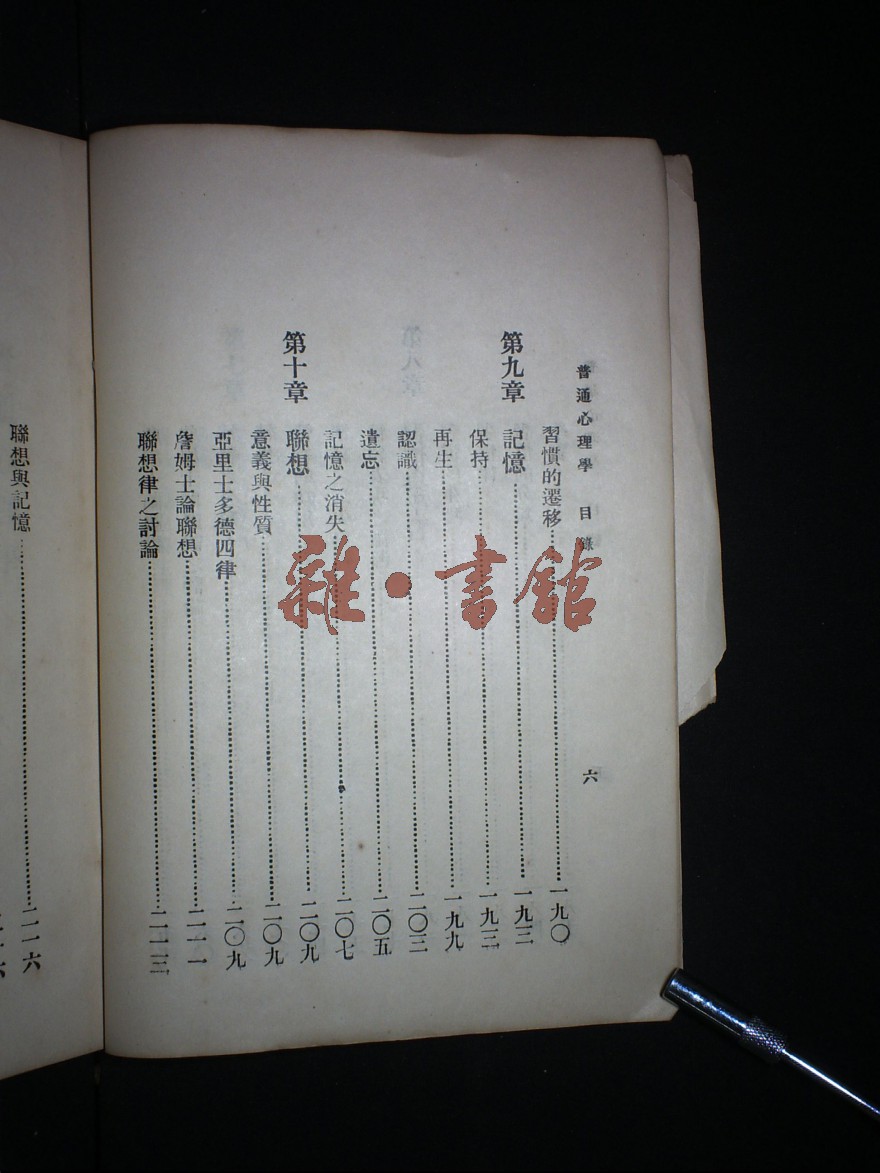 普通心理學 目錄 六
習慣的遷移 一九〇
第九章 記憶 一九三
保持 一九三
再生 一九九
認識 二〇三
遺忘 二〇五
記憶之消失 二〇七
第十章 聯想 二〇九
意義與性質 二〇九
亞里士多德四律 二〇九
詹姆士論聯想 二一一
聯想律之討論 二一三
聯想與記憶 二一六
雜·書館